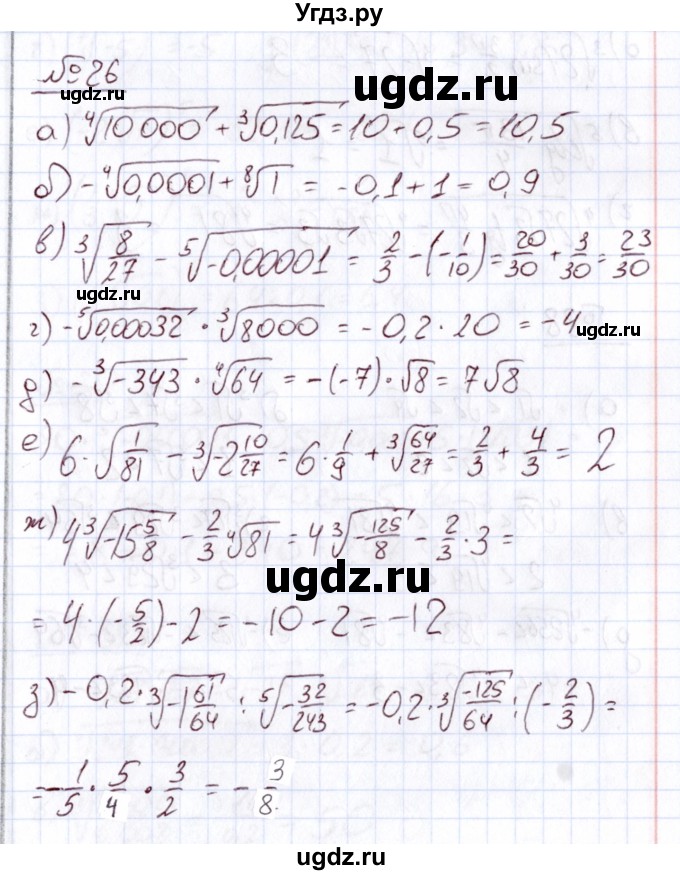 Угдз.ру
№ 26
ugdz.ru
а) ⁴√10 000 + ³√0,125 = 10 + 0,5 = 10,5
б) -⁴√0,0001 + ⁸√1 = -0,1 + 1 = 0,9
ugdz.ru
в) ³√(8/27) - ⁵√(-0,00001) = 2/3 - (-1/10) = 20/30 + 3/30 = 23/30
ugdz.ru
г) -⁵√0,00032 · ³√8000 = -0,2 · 20 = -4
ugdz.ru
ugdz.ru
д) -³√-343 · ⁴√64 = -(-7) · √8 = 7√8
е) 6 · √(1/81) - ³√(-2 10/27) = 6 · 1/9 + ³√(64/27) = 2/3 + 4/3 = 2
ж) 4 ³√(-15 5/8) - 2/3 ⁴√81 = 4 ³√(-125/8) - 2/3 · 3 =
ugdz.ru
= 4 · (-5/2) - 2 = -10 - 2 = -12
з) -0,2 · ³√(-1 61/64) : ⁵√(-32/243) = -0,2 · ³√(-125/64) : (-2/3) =
= -1/5 · 5/4 · 3/2 = -3/8.
ugdz.ru
ugdz.ru